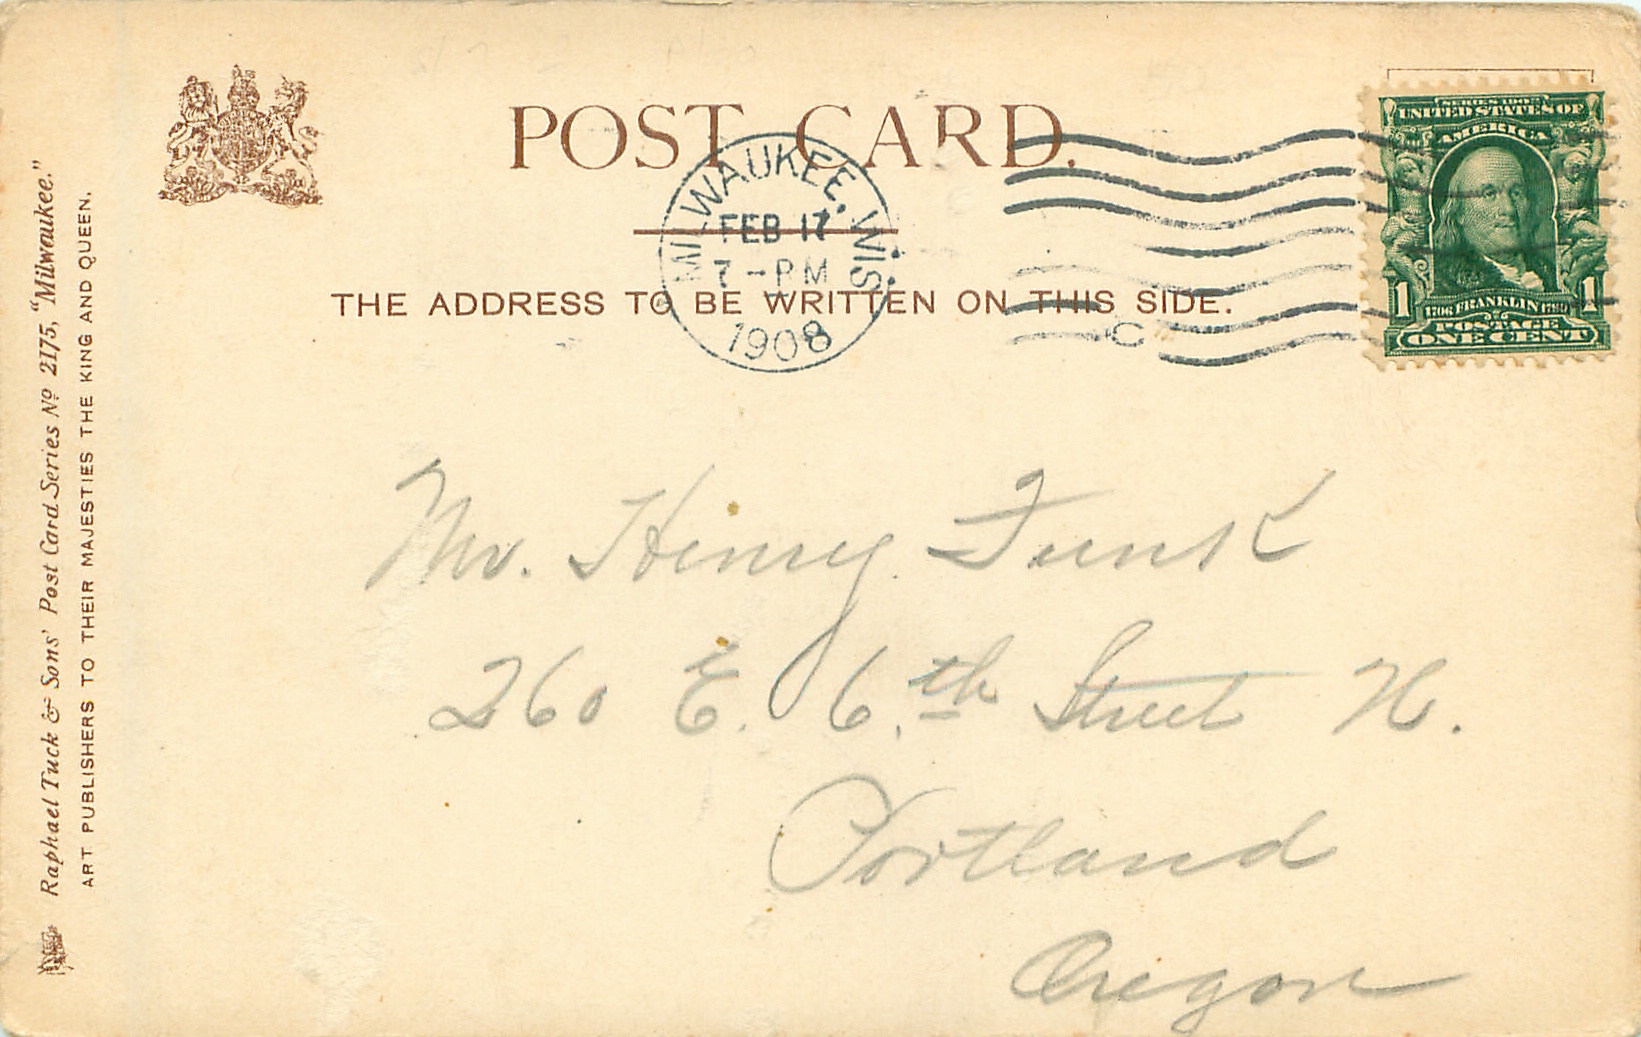 POST CARD.
THE ADDRESS TO BE WRITTEN ON THIS SIDE.
MILWAUKEE, WIS.
FEB 17
7 - PM
1908
C
SERIES 1902
UNITED STATES OF
AMERICA
1 1706 FRANKLIN 1790 1
POSTAGE
ONE CENT
Mr. Henry Funk
260 E. 6.th Street N.
Portland
Oregon
Raphael Tuck & Sons' Post Card Series No 2175, "Milwaukee."
ART PUBLISHERS TO THEIR MAJESTIES THE KING AND QUEEN.